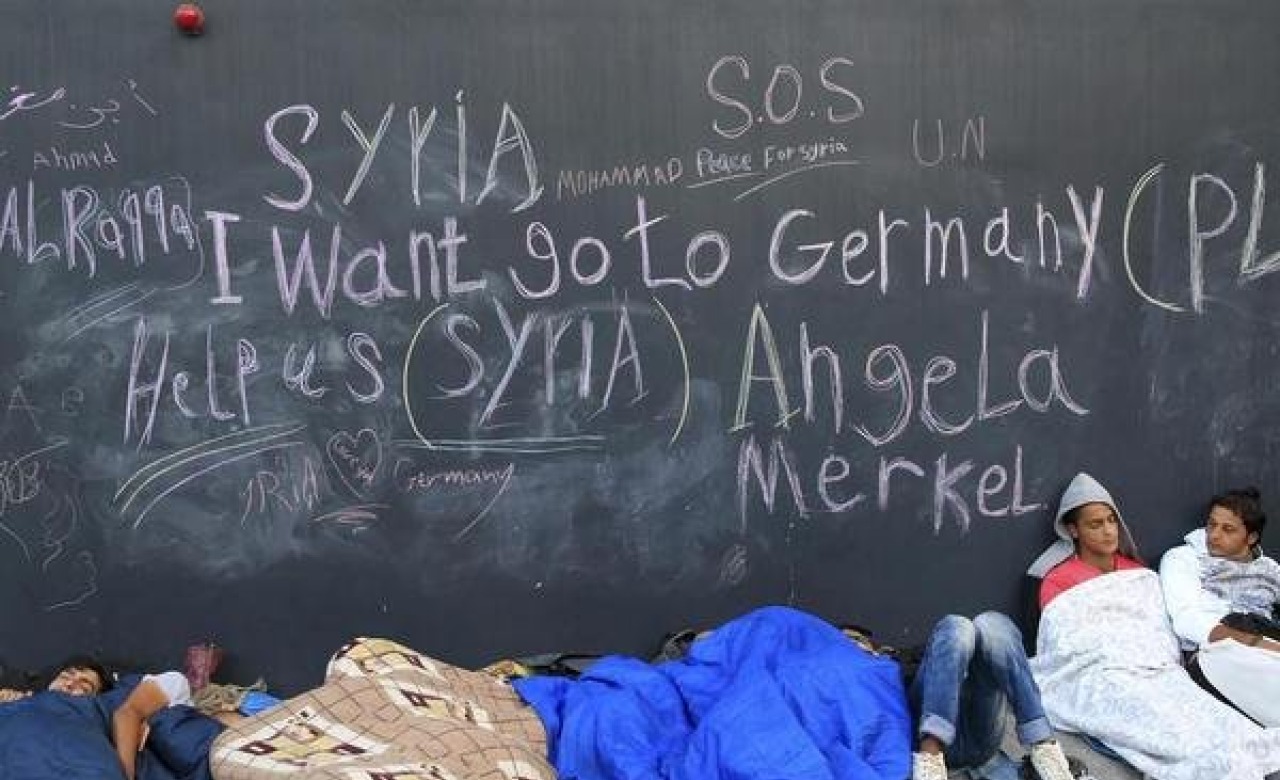 S.O.S
SyriA
U.N
Ahmad
MOHAMMAD Peace For syria
ALRaqqa
I Want go to Germany (PL
Help us (SyriA) AngeLa
MerkeL
Germany